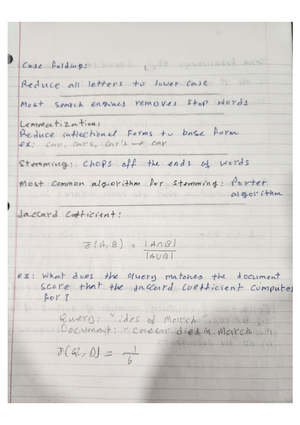 Case folding:
Reduce all letters to lower case
Most search engines removes stop words
Lemmatization:
Reduce inflectional forms to base form
ex: car, cars, car's → car
Stemming: Chops off the ends of words
Most common algorithm for stemming: Porter
algorithm
Jaccard Coefficient:
J(A,B) = |A∩B|
|A∪B|
ex: What does the query matches the document
score that the Jaccard Coefficient computes
for?
Query: "ides of March"
Document: "caesar died in March
J(Q,D) = 1
6